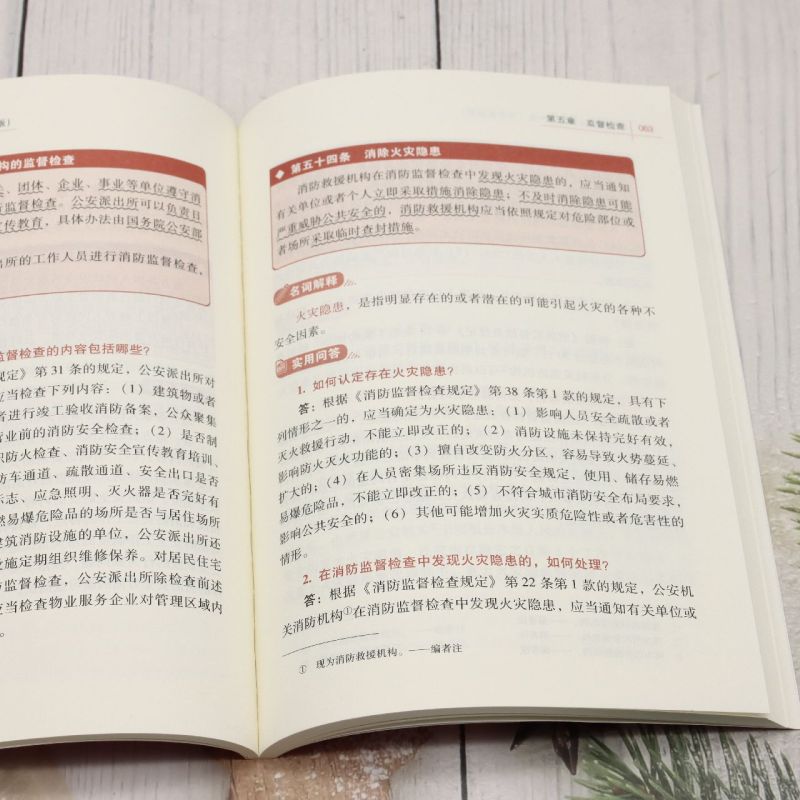 版）
构的监督检查
关、团体、企业、事业等单位遵守消
行监督检查。公安派出所可以负责日
宣传教育，具体办法由国务院公安部
出所的工作人员进行消防监督检查，
监督检查的内容包括哪些？
规定》第 31 条的规定，公安派出所对
应当检查下列内容：（1）建筑物或者
者进行竣工验收消防备案，公众聚集
营业前的消防安全检查；（2）是否制
织防火检查、消防安全宣传教育培训、
防车通道、疏散通道、安全出口是否
标志、应急照明、灭火器是否完好有
燃易爆危险品的场所是否与居住场所
建筑消防设施的单位，公安派出所还
设施定期组织维修保养。对居民住宅
防监督检查，公安派出所除检查前述
应当检查物业服务企业对管理区域内
。
第五章 监督检查 063
◆ 第五十四条 消除火灾隐患
消防救援机构在消防监督检查中发现火灾隐患的，应当通知
有关单位或者个人立即采取措施消除隐患；不及时消除隐患可能
严重威胁公共安全的，消防救援机构应当依照规定对危险部位或
者场所采取临时查封措施。
名词解释
火灾隐患，是指明显存在的或者潜在的可能引起火灾的各种不
安全因素。
实用问答
1. 如何认定存在火灾隐患？
答：根据《消防监督检查规定》第 38 条第 1 款的规定，具有下
列情形之一的，应当确定为火灾隐患：（1）影响人员安全疏散或者
灭火救援行动，不能立即改正的；（2）消防设施未保持完好有效，
影响防火灭火功能的；（3）擅自改变防火分区，容易导致火势蔓延、
扩大的；（4）在人员密集场所违反消防安全规定，使用、储存易燃
易爆危险品，不能立即改正的；（5）不符合城市消防安全布局要求，
影响公共安全的；（6）其他可能增加火灾实质危险性或者危害性的
情形。
2. 在消防监督检查中发现火灾隐患的，如何处理？
答：根据《消防监督检查规定》第 22 条第 1 款的规定，公安机
关消防机构①在消防监督检查中发现火灾隐患，应当通知有关单位或
① 现为消防救援机构。——编者注